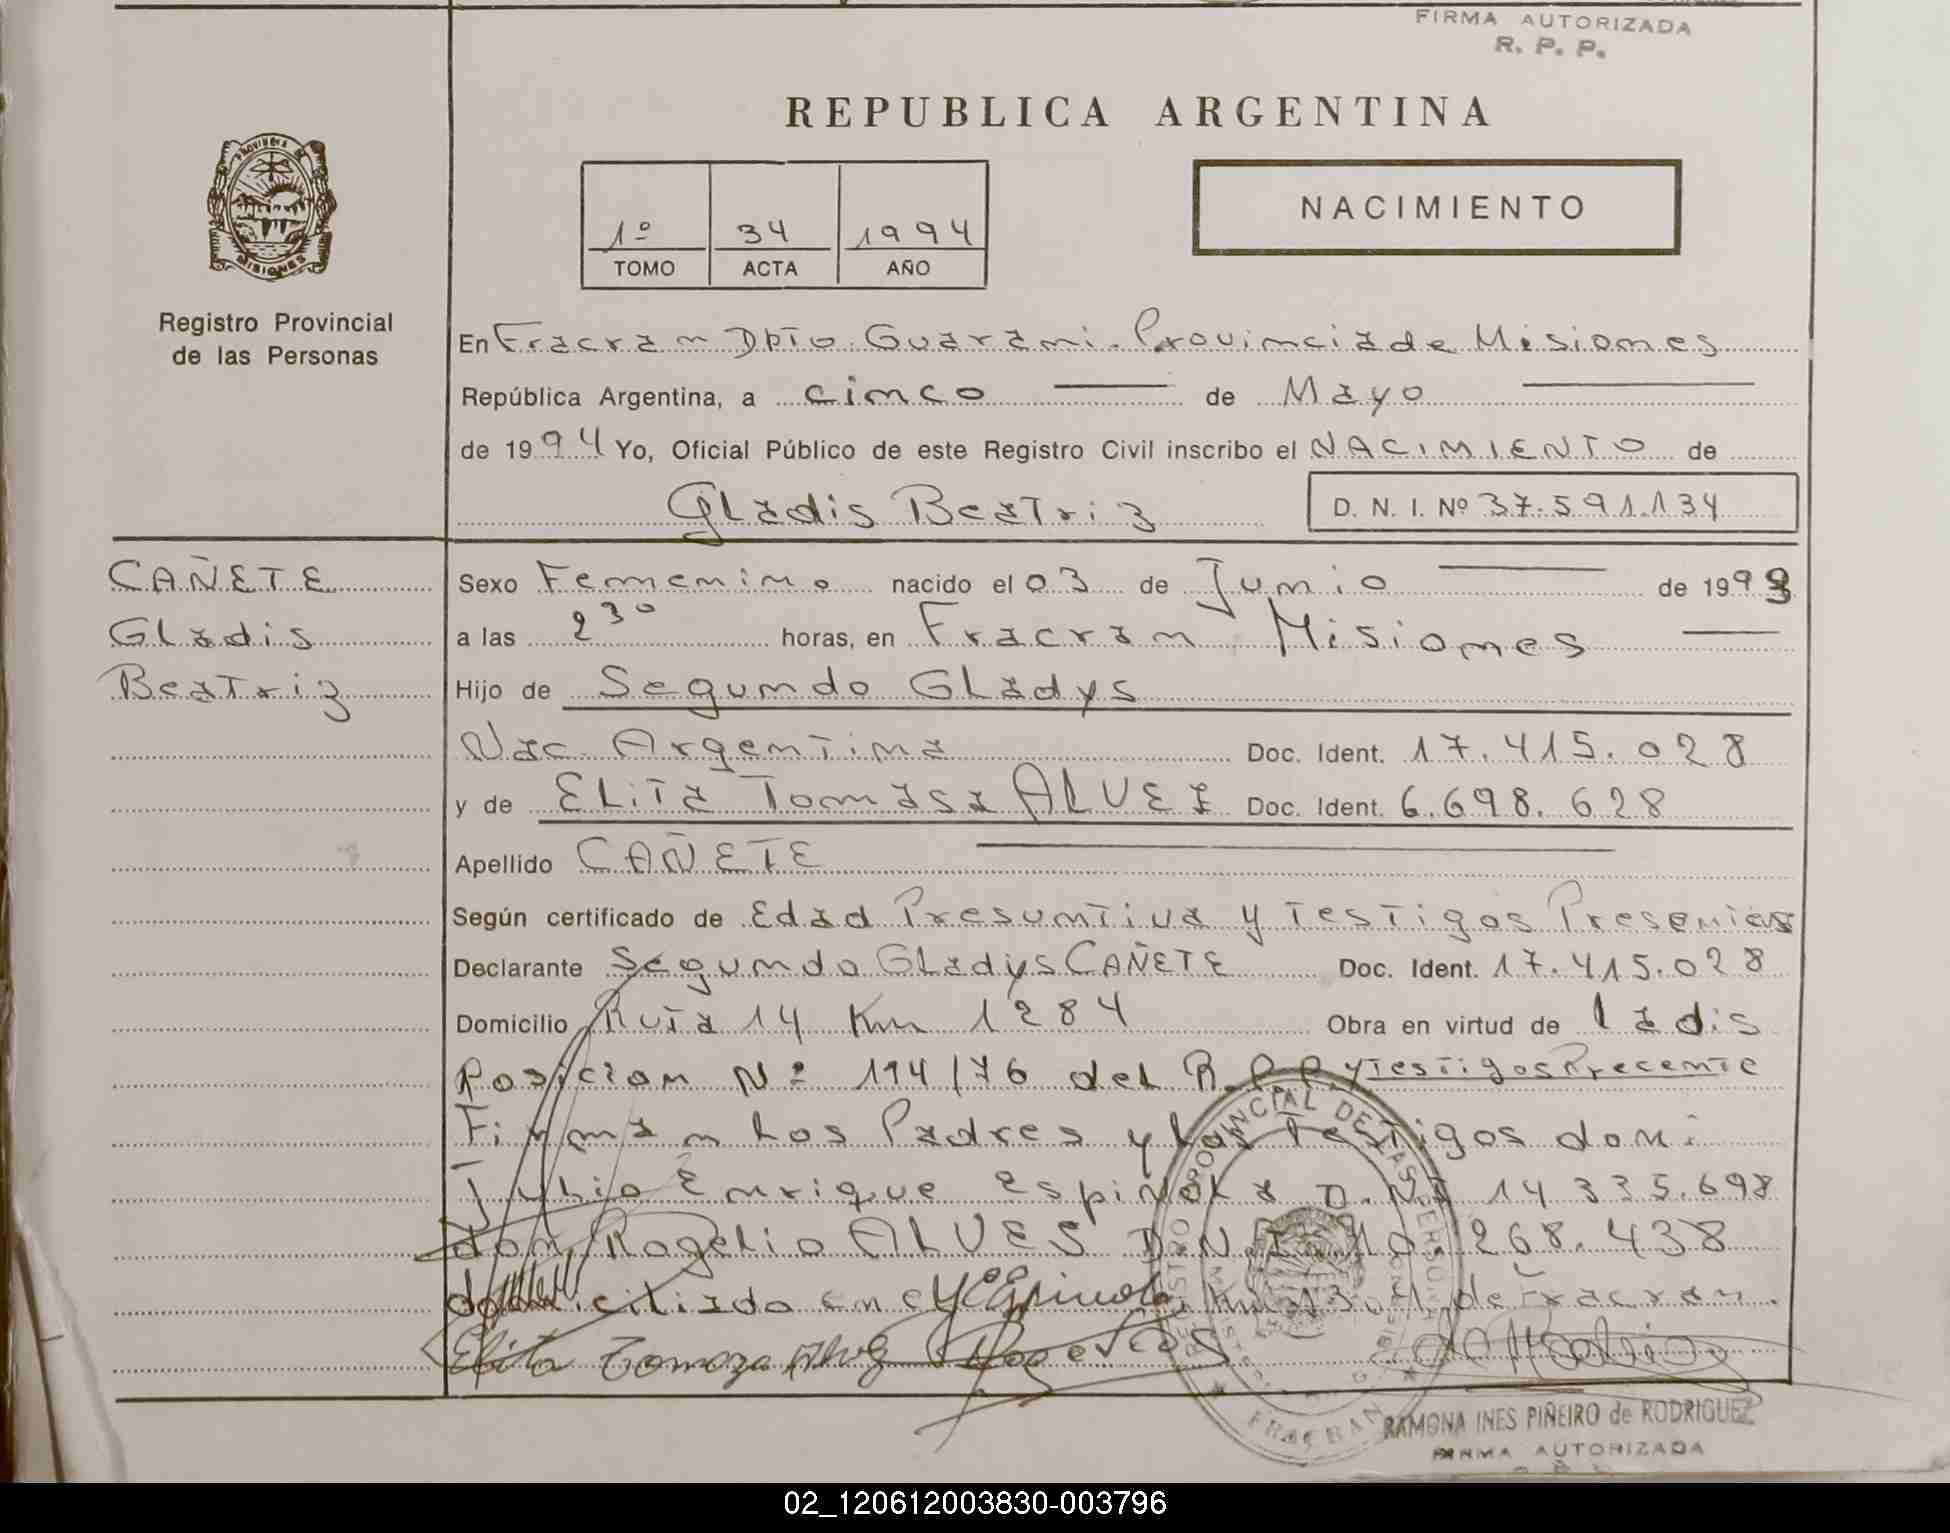 FIRMA AUTORIZADA
R. P. P.
REPUBLICA ARGENTINA
PROVINCIA DE
MISIONES
Registro Provincial
de las Personas
1º 34 1994
TOMO ACTA AÑO
NACIMIENTO
En Fracran Dpto Guarani. Provincia de Misiones
República Argentina, a cinco de Mayo
de 1994 Yo, Oficial Público de este Registro Civil inscribo el NACIMIENTO de
Gladis Beatriz D. N. I. Nº 37.591.134
CAÑETE
Gladis
Beatriz
Sexo Femenino nacido el 03 de Junio de 1993
a las 2 30 horas, en Fracran Misiones
Hijo de Segundo Gladys
Nac. Argentina Doc. Ident. 17.415.028
y de Elita Tomasa ALVEZ Doc. Ident. 6.698.628
Apellido CAÑETE
Según certificado de Edad Presuntiva y Testigos Presentes
Declarante Segundo Gladys CAÑETE Doc. Ident. 17.415.028
Domicilio Ruta 14 Km 1284 Obra en virtud de la dis
posicion Nº 114/76 del R.P.P. y Testigos Precente
Firman los Padres y los Testigos don:
Julio Enrique Espinola D.N.I 14 335.698
don Rogelio ALVES D.N.I. 10.268.438
domiciliado en el Km 1301 de Fracran.
Espinola
Elita Tomaza Alvez
REGISTRO PROVINCIAL DE LAS PERSONAS
FRACRAN
RAMONA INES PIÑEIRO de RODRIGUEZ
FIRMA AUTORIZADA
02_120612003830-003796